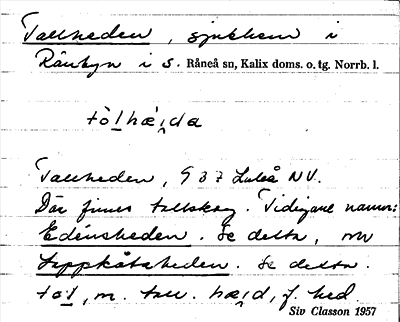 Tallheden, sjukhem i
Rånbyn i S. Råneå sn, Kalix doms. o. tg. Norrb. l.
tòlhæ̀i̯da
Tallheden, 937 Luleå NV.
Där finnes tallskog. Tidigare namn:
Edénsheden. Se detta, om
Lappkåtaheden. Se detta.
tol, m. tall. hæi̯d, f. hed.
Siv Classon 1957